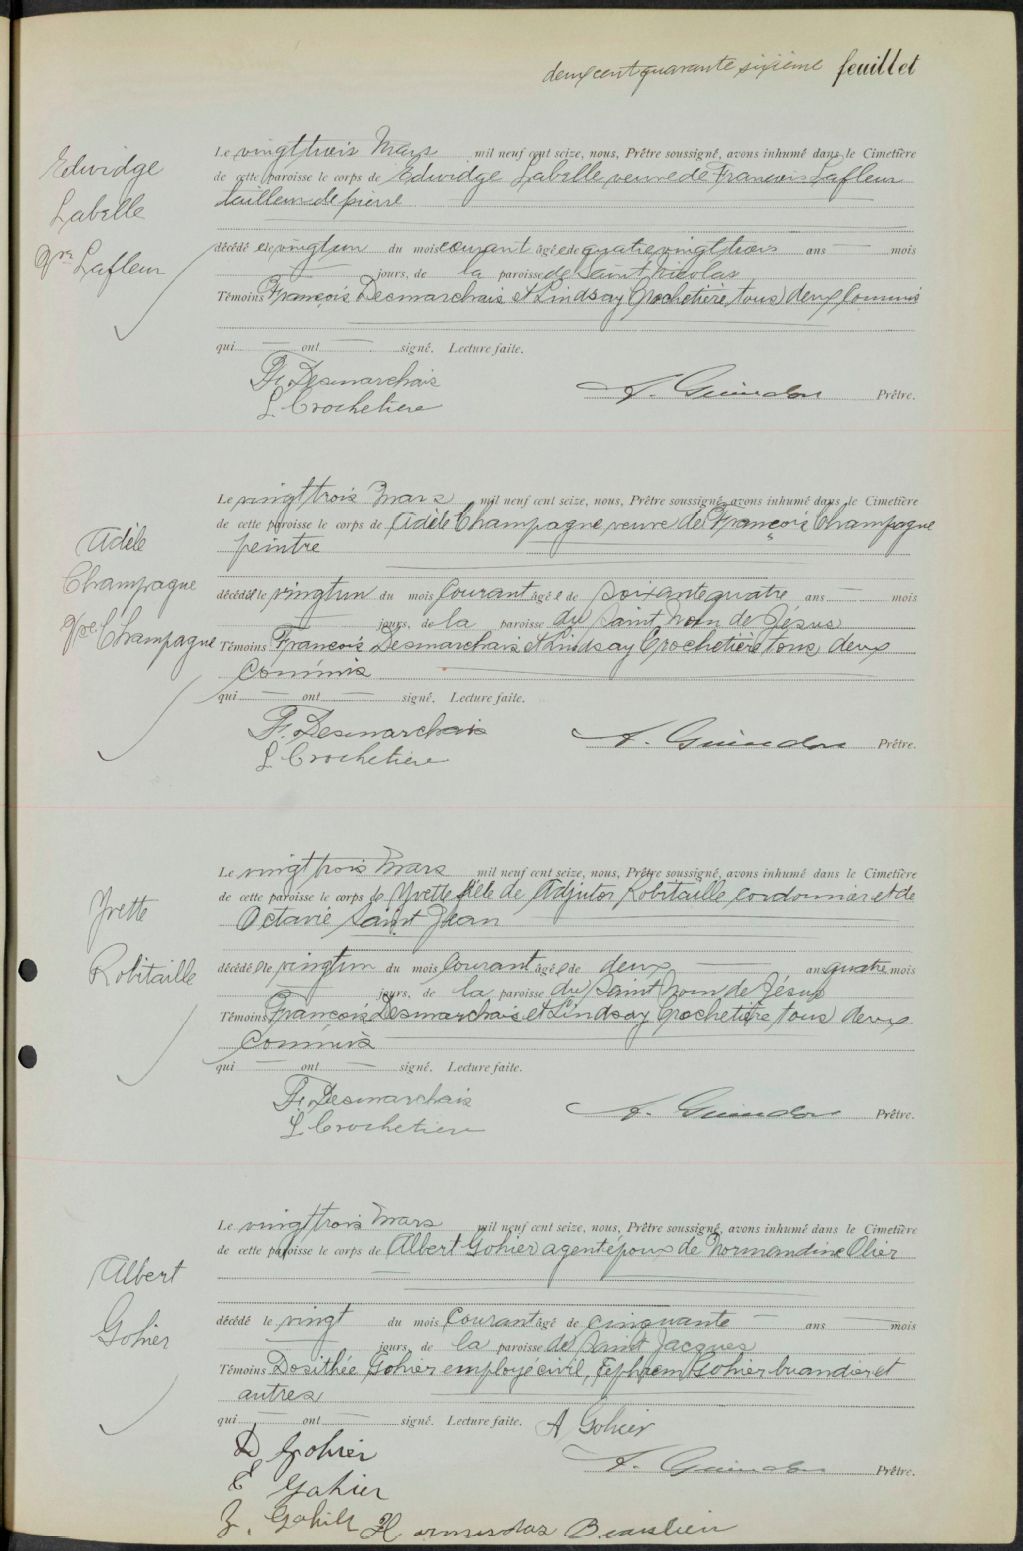 deux cent quarante sixième feuillet
Edwidge
Labelle
Vve Lafleur
Le vingt trois Mars mil neuf cent seize, nous, Prêtre soussigné, avons inhumé dans le Cimetière
de cette paroisse le corps de Edwidge Labelle veuve de François Lafleur
tailleur de pierre
décédée le vingt un du mois courant âgée de quatre vingt trois ans mois
jours, de la paroisse de Saint Nicolas
Témoins François Desmarchais et Lindsay Crochetière, tous deux Commis
qui ont signé. Lecture faite.
F. Desmarchais
L. Crochetiere
A. Guindon Prêtre.
Adèle
Champagne
Vve Champagne
Le vingt trois Mars mil neuf cent seize, nous, Prêtre soussigné, avons inhumé dans le Cimetière
de cette paroisse le corps de Adèle Champagne veuve de François Champagne
peintre
décédée le vingt un du mois Courant âgée de soixante quatre ans mois
jours, de la paroisse du Saint Nom de Jésus
Témoins François Desmarchais et Lindsay Crochetière tous deux
Commis
qui ont signé. Lecture faite.
F. Desmarchais
L. Crochetiere
A. Guindon Prêtre.
Yvette
Robitaille
Le vingt trois Mars mil neuf cent seize, nous, Prêtre soussigné, avons inhumé dans le Cimetière
de cette paroisse le corps de Yvette fille de Adjutor Robitaille cordonnier et de
Octavie Saint Jean
décédée le vingt un du mois Courant âgée de deux ans quatre mois
jours, de la paroisse du Saint Nom de Jésus
Témoins François Desmarchais et Lindsay Crochetière, tous deux
Commis
qui ont signé. Lecture faite.
F. Desmarchais
L. Crochetiere
A. Guindon Prêtre.
Albert
Gohier
Le vingt trois Mars mil neuf cent seize, nous, Prêtre soussigné, avons inhumé dans le Cimetière
de cette paroisse le corps de Albert Gohier agent époux de Normandine
décédé le vingt du mois Courant âgé de cinquante ans mois
jours, de la paroisse de Saint Jacques
Témoins Dosithée Gohier employé civil, Ephrem Gohier buandier et
autres
qui ont signé. Lecture faite. A Gohier
D Gohier
E Gohier
A. Guindon Prêtre.
Hormisdas Beaulieu